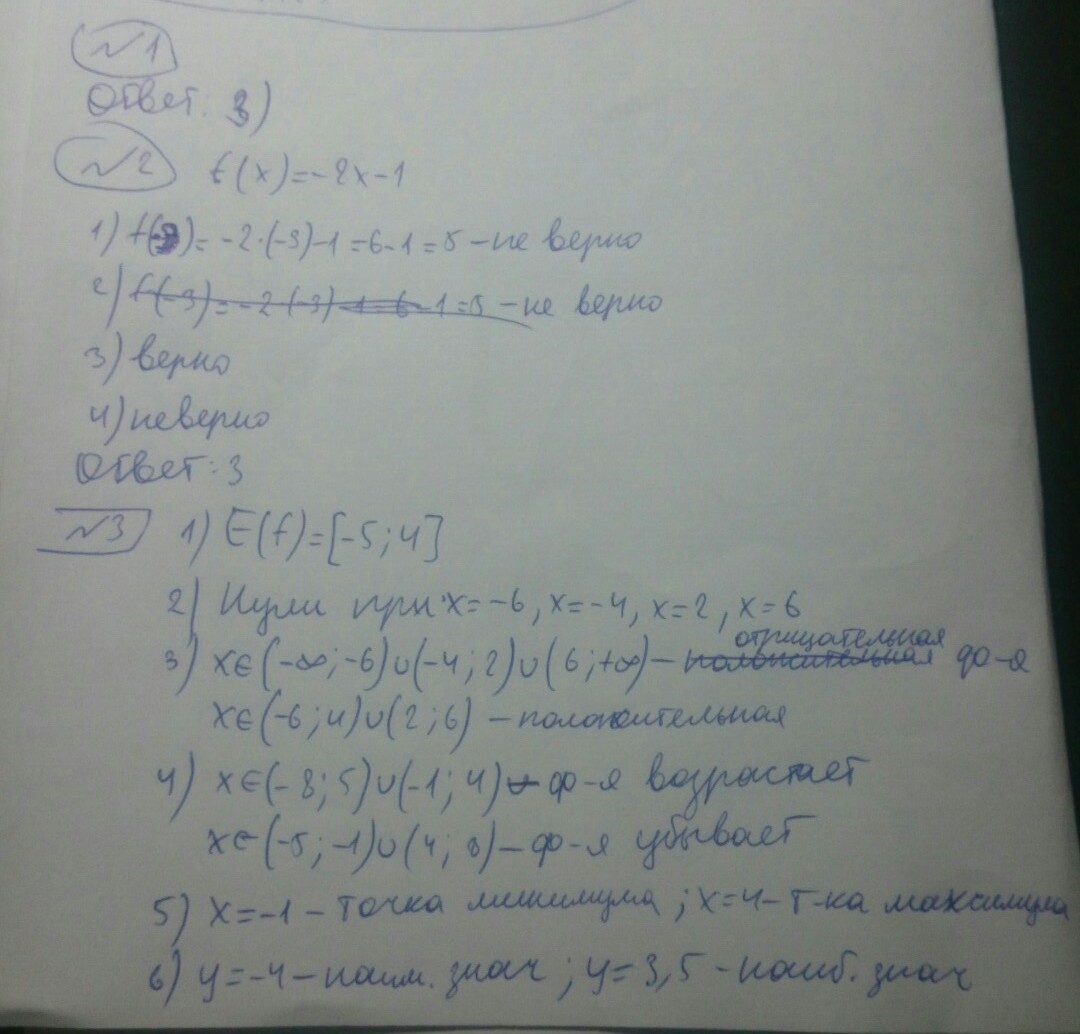 №1
Ответ: 3)
№2 f(x)=-2x-1
1) f(-3)=-2·(-3)-1=6-1=5-не верно
2) f(-3)=-2(-3)-1=6-1=5-не верно
3) верно
4) неверно
Ответ: 3
№3 1) E(f)=[-5;4]
2) Нули при x=-6, x=-4, x=2, x=6
отрицательная
3) x∈(-∞;-6)∪(-4;2)∪(6;+∞)-положительная ф-я
x∈(-6;4)∪(2;6)-положительная
4) x∈(-8;5)∪(-1;4)-ф-я возрастает
x∈(-5;-1)∪(4;8)-ф-я убывает
5) x=-1-точка минимума; x=4-т-ка максимума
6) y=-4-наим. знач; y=3,5-наиб. знач